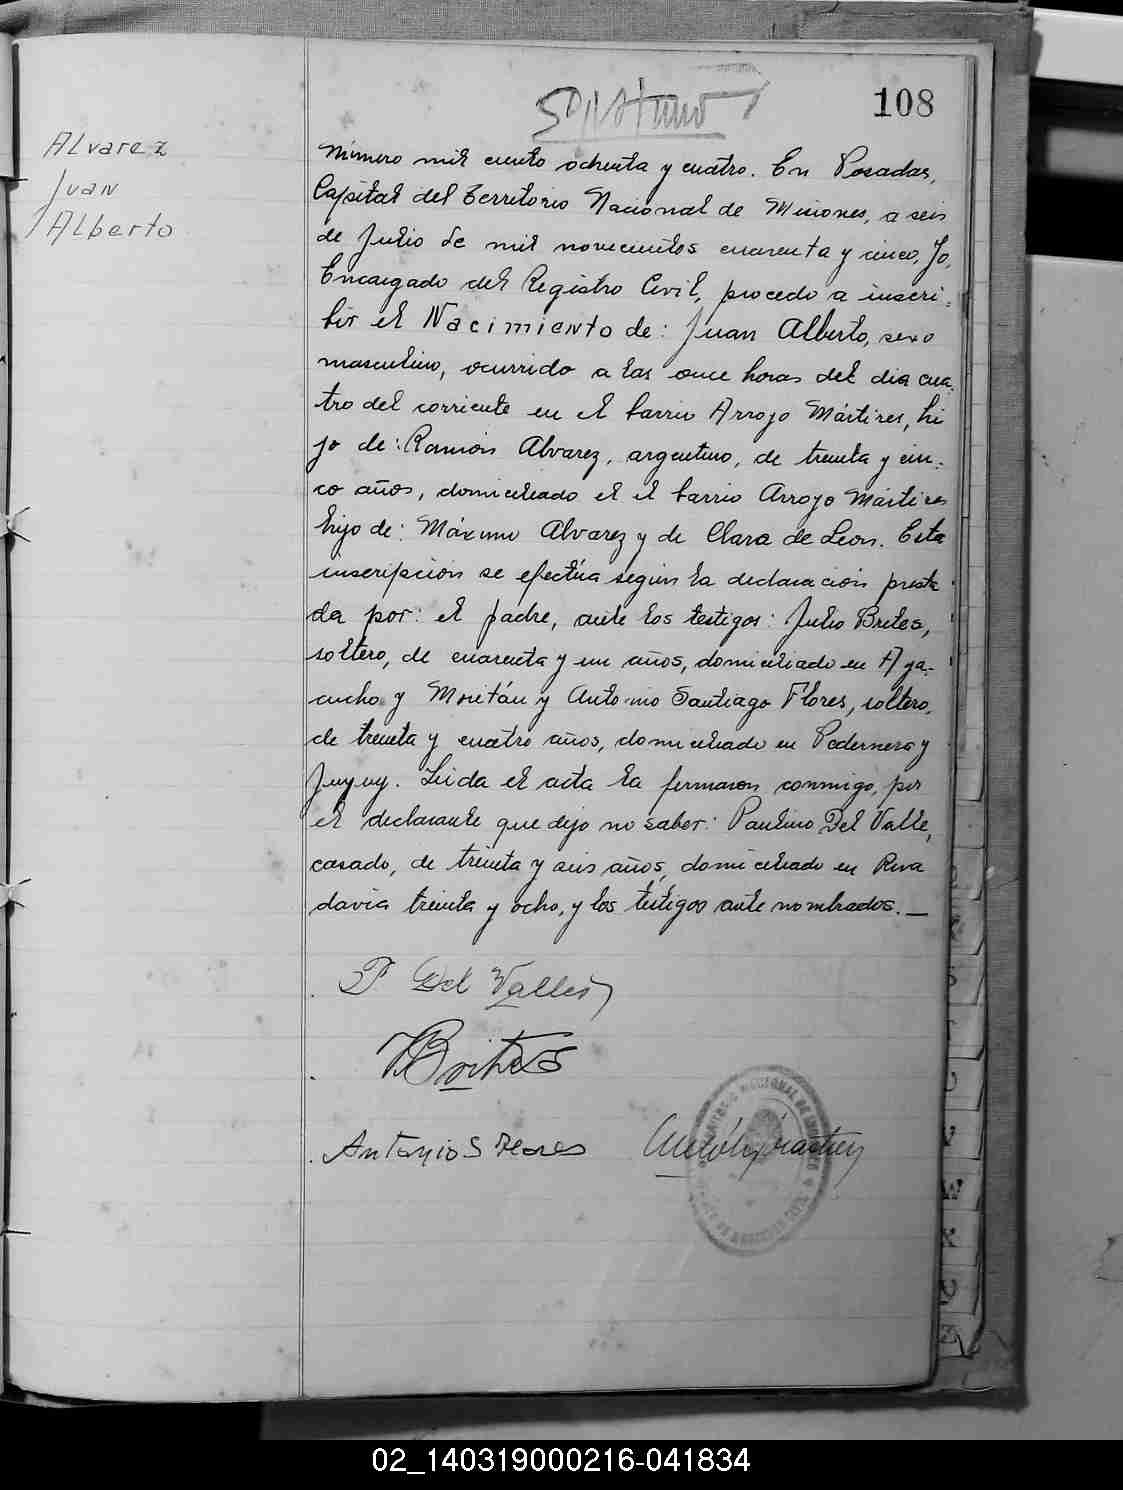 108
Alvarez
Juan
Alberto
Número mil ciento ochenta y cuatro. En Posadas,
Capital del Territorio Nacional de Misiones, a seis
de Julio de mil novecientos cuarenta y cinco, Yo,
Encargado del Registro Civil, procedo a inscri-
bir el Nacimiento de: Juan Alberto, sexo
masculino, ocurrido a las once horas del dia cua-
tro del corriente en el barrio Arroyo Mártires, hi
jo de: Ramón Alvarez, argentino, de treinta y cin-
co años, domiciliado el el barrio Arroyo Mártires
hijo de: Máximo Alvarez y de Clara de Leon. Esta
inscripción se efectúa según la declaración presta
da por: el padre, ante los testigos: Julio Brites,
soltero, de cuarenta y un años, domiciliado en Aya-
cucho y Moritán y Antonio Santiago Flores, soltero,
de treinta y cuatro años, domiciliado en Pedernera y
Jujuy. Leida el acta la firmaron conmigo, por
el declarante que dijo no saber: Paulino Del Valle,
casado, de treinta y seis años, domiciliado en Riva
davia treinta y ocho, y los testigos ante nombrados.—
P Del Valle
Brites
Antonio S Flores
02_140319000216-041834